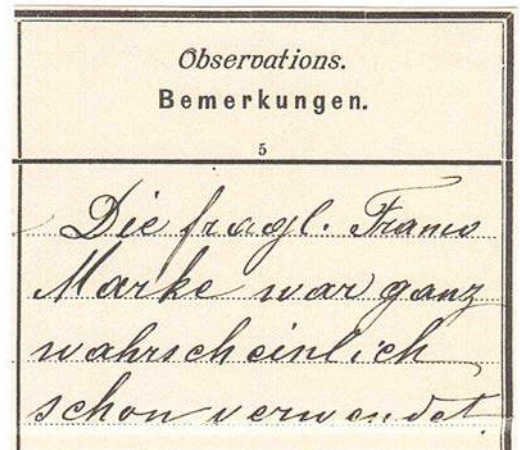 Observations.
Bemerkungen.
5
Die fragl. Franco
Marke war ganz
wahrscheinlich
schon verwendet.